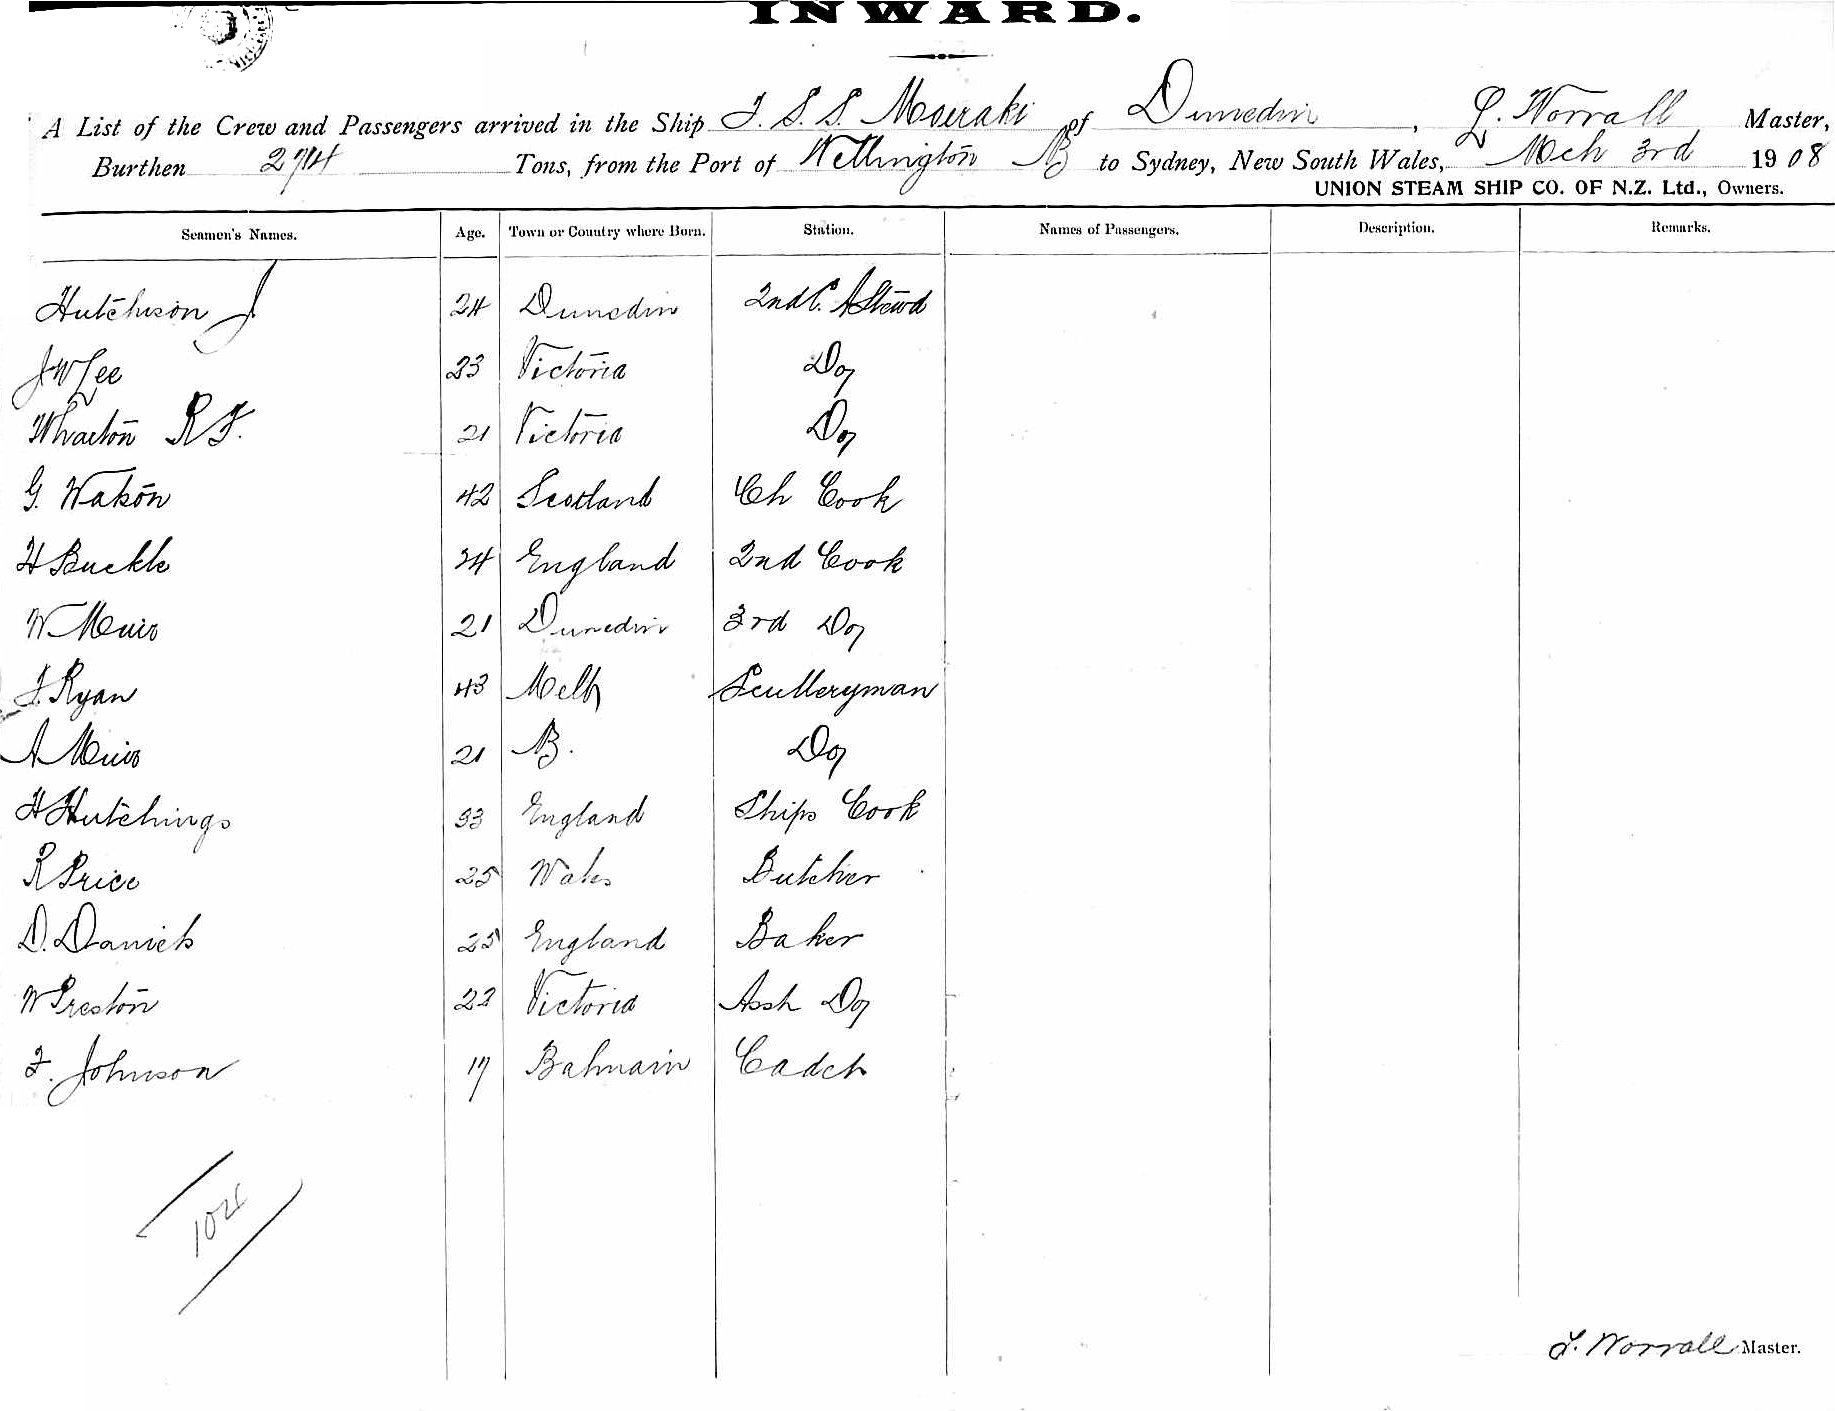 INWARD.
A List of the Crew and Passengers arrived in the Ship T. S. S. Moeraki of Dunedin, L. Worrall Master,
Burthen 2714 Tons, from the Port of Wellington NZ to Sydney, New South Wales, Mch 3rd 1908
UNION STEAM SHIP CO. OF N.Z. Ltd., Owners.
Seamen's Names. Age. Town or Country where Born. Station. Names of Passengers. Description. Remarks.
Hutchison J 24 Dunedin 2nd C. A Stewd
J W Lee 23 Victoria Do
Wharton R F. 21 Victoria Do
G. Watson 42 Scotland Ch Cook
H Buckle 24 England 2nd Cook
W Muir 21 Dunedin 3rd Do
J. Ryan 43 Melb Sculleryman
A Muir 21 NZ. Do
H Hutchings 33 England Ships Cook
R Price 25 Wales Butcher
D. Daniels 25 England Baker
W Preston 22 Victoria Asst Do
F. Johnson 17 Bahrain Cadet
L. Worrall Master.